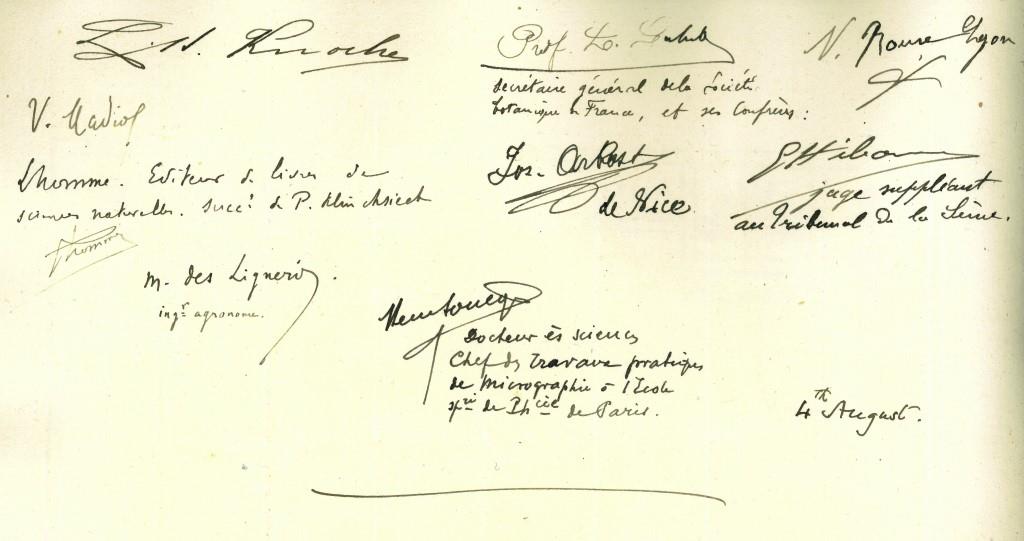 Knoche
Prof. L.
secrétaire général de la Société
botanique de France, et ses Confrères :
N. Roux Lyon
V. Madiot
Lhomme. Editeur de livres de
sciences naturelles. Succ.r de P. Klincksieck
Lhomme
Jos. Arbost
de Nice
juge suppléant
au Tribunal de la Seine.
M. des Ligneris.
ing.r agronome.
Docteur ès sciences
Chef des Travaux pratiques
de Micrographie à l'Ecole
sp.re de Ph.cie de Paris.
4th August.